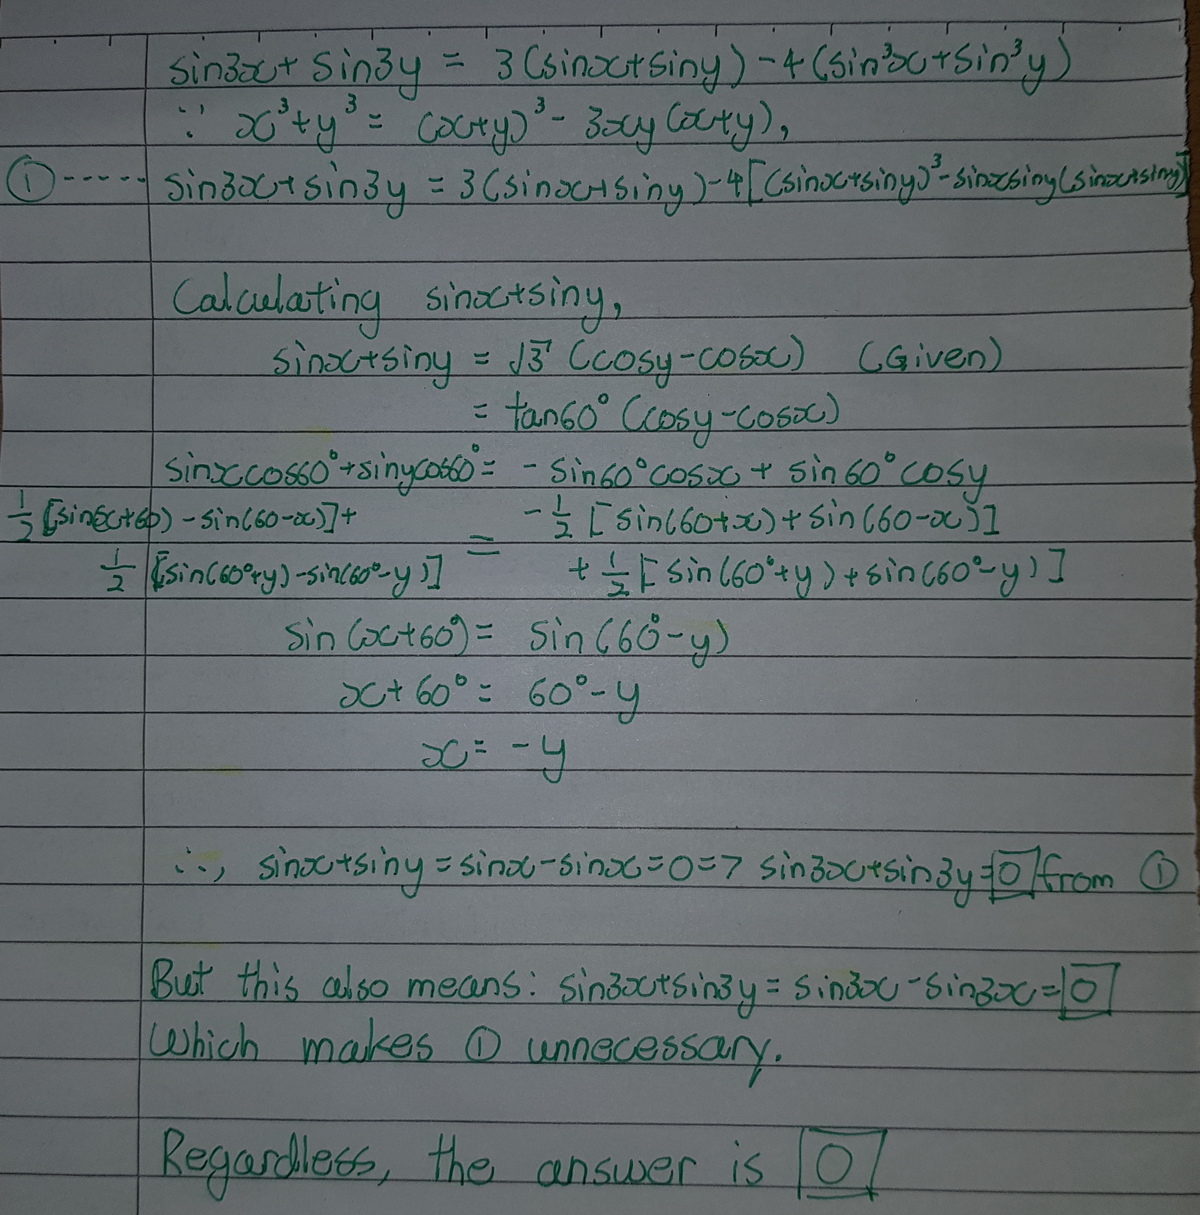 sin3x + sin3y = 3(sinx+siny) - 4(sin³x+sin³y)
∵ x³+y³ = (x+y)³ - 3xy(x+y),
① ----- sin3x+sin3y = 3(sinx+siny)-4[(sinx+siny)³-sinxsiny(sinx+siny)]
Calculating sinx+siny,
sinx+siny = √3 (cosy-cosx) (Given)
= tan60° (cosy-cosx)
sinxcos60°+sinycos60° = -sin60°cosx + sin60°cosy
½[sin(x+60)-sin(60-x)]+ -½[sin(60+x)+sin(60-x)]
=
½[sin(60°+y)-sin(60°-y)] +½[sin(60°+y)+sin(60°-y)]
sin(x+60°) = sin(60°-y)
x+60° = 60°-y
x = -y
∴, sinx+siny = sinx-sinx=0 => sin3x+sin3y=0 from ①
But this also means: sin3x+sin3y = sin3x-sin3x=0
Which makes ① unnecessary.
Regardless, the answer is 0